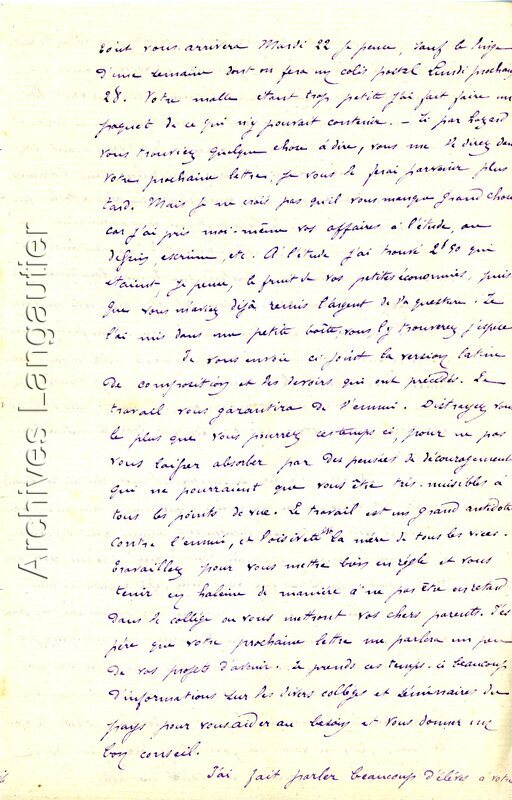 tout vous arrivera Mardi 22 je pense, sauf le linge
d'une semaine dont on fera un colis postal Lundi prochain
28. Votre malle étant trop petite j'ai fait faire un
paquet de ce qui n'y pouvait contenir. - Si par hasard
vous trouviez quelque chose à dire, vous me le direz dans
votre prochaine lettre, je vous le ferai parvenir plus
tard. Mais je ne crois pas qu'il vous manque grand chose
car j'ai pris moi-même vos affaires à l'étude, au
dessin, escrime, etc. A l'étude j'ai trouvé 2f50 qui
étaient, je pense, le fruit de vos petites économies, puis
que vous m'aviez déjà remis l'argent de la questure. Je
l'ai mis dans une petite boîte, vous l'y trouverez j'espère
Je vous envoie ci joint la version latine
de composition et les devoirs qui ont précédés. Le
travail vous garantira de l'ennui. Distrayez vous
le plus que vous pourrez ces temps ci, pour ne pas
vous laisser absorber par des pensées de découragement
qui ne pourraient que vous être très-nuisibles à
tous les points de vue. Le travail est un grand antidote
contre l'ennui, et l'oisiveté la mère de tous les vices.
Travaillez pour vous mettre bien en règle et vous
tenir en haleine de manière à ne pas être en retard
dans le collège où vous mettront vos chers parents. J'es
père que votre prochaine lettre me parlera un peu
de vos projets d'avenir. Je prends ces temps-ci beaucoup
d'informations sur les divers collèges et séminaires du
pays pour vous aider au besoin et vous donner un
bon conseil.
J'ai fait parler beaucoup d'élèves a votre
Archives Langautier